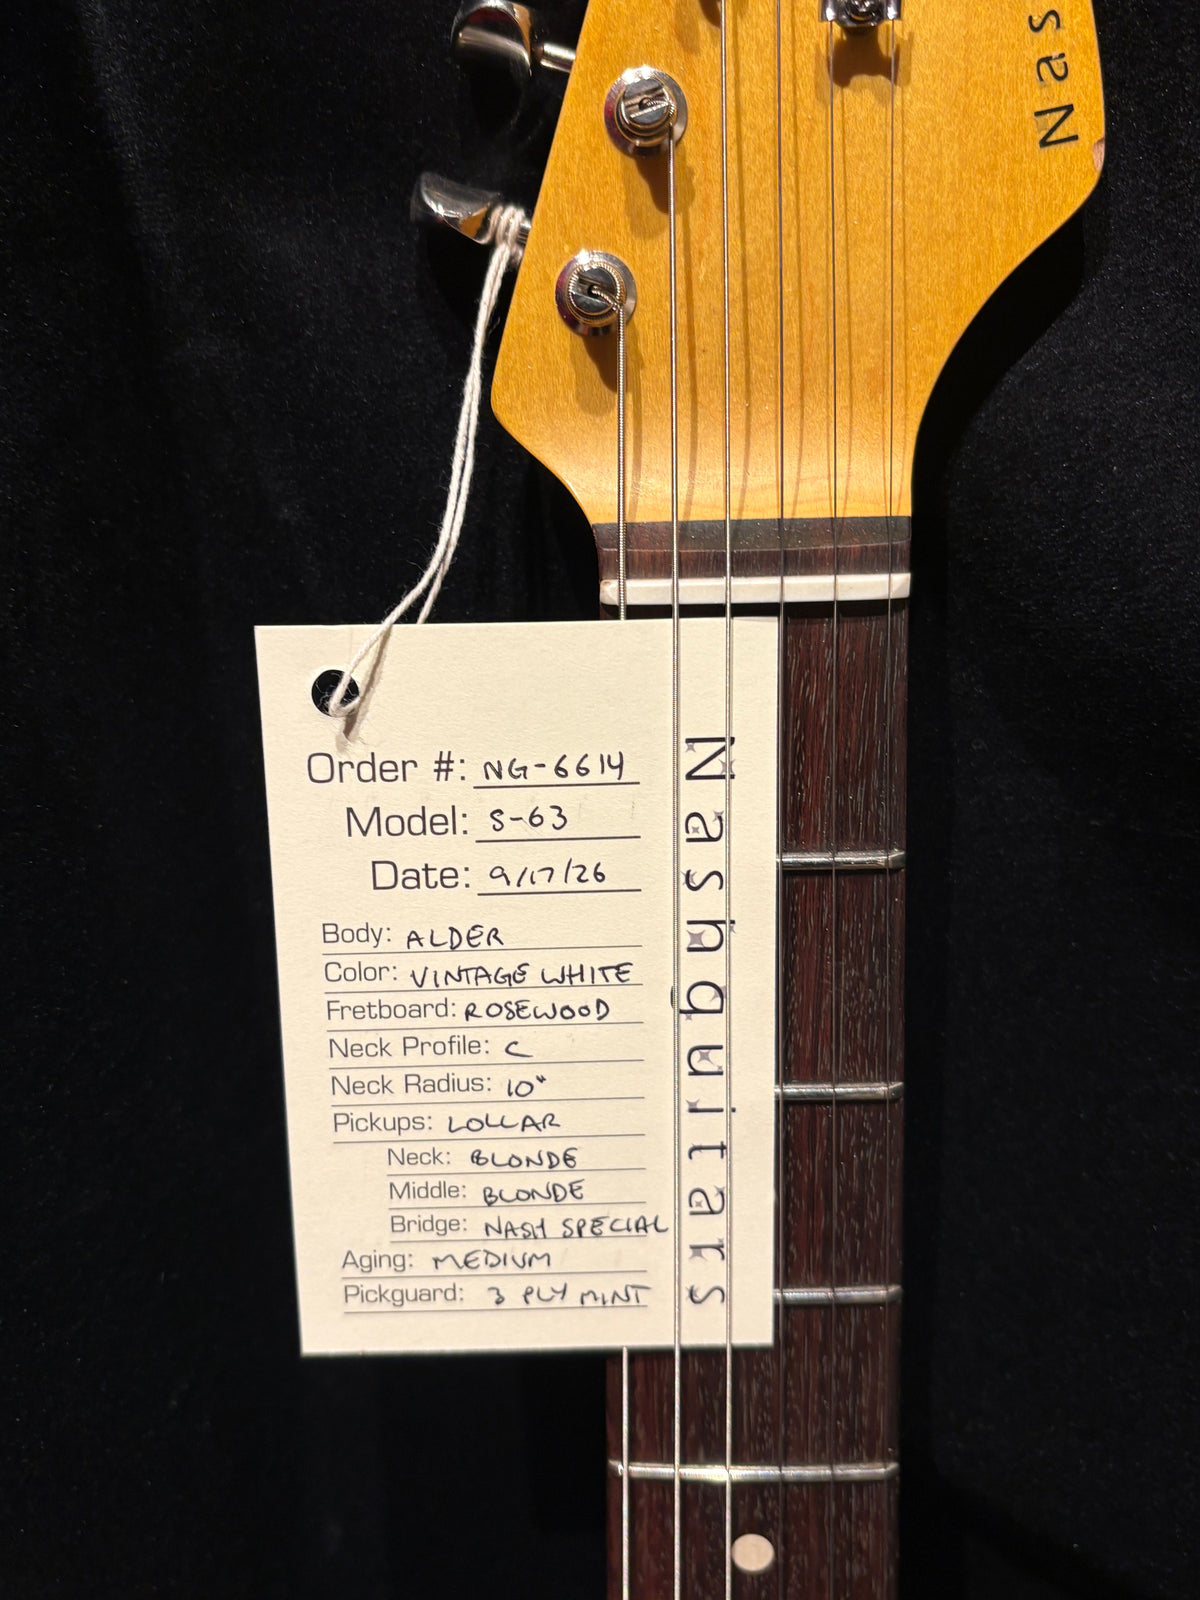 Nas
Order #: NG-6614
Model: S-63
Date: 9/17/26
Body: ALDER
Color: VINTAGE WHITE
Fretboard: ROSEWOOD
Neck Profile: C
Neck Radius: 10"
Pickups: LOLLAR
Neck: BLONDE
Middle: BLONDE
Bridge: NASH SPECIAL
Aging: MEDIUM
Pickguard: 3 PLY MINT
Nashguitars